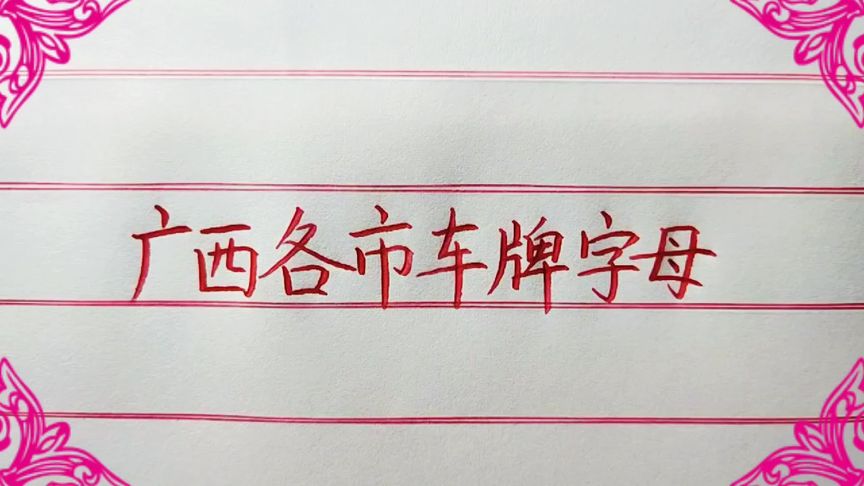 广西各市车牌字母